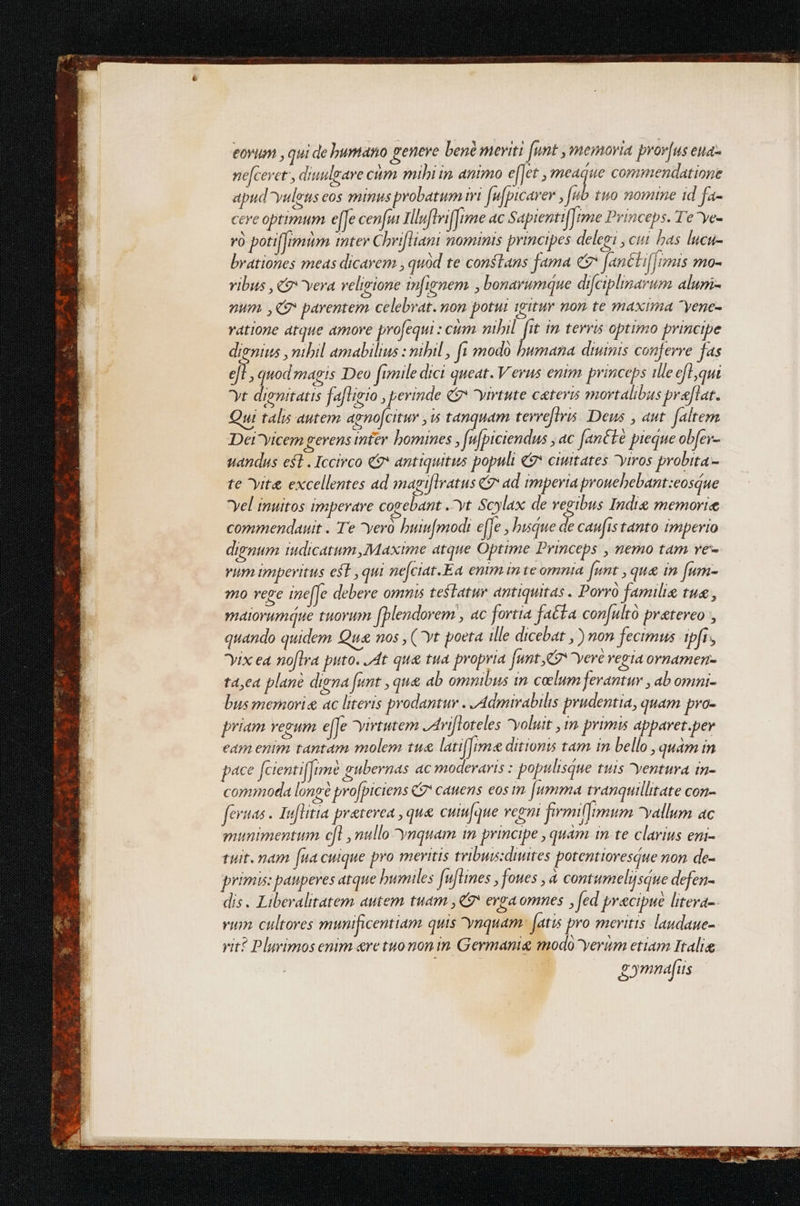 eorum , qui de humano genere benè meriti ſunt , memoria prorſus eua-
neſceret , diuulgare cùm mihi in animo eſſet , meaq́ue commendatione
apud vulgus eos minus probatum iri ſuſpicarer , ſub tuo nomine id fa-
cere optimum eſſe cenſui Illuſtriſſime ac Sapientiſſime Princeps. Te ve-
rò potiſſimùm inter Chriſtiani nominis principes delegi , cui has lucu-
brationes meas dicarem , quòd te conſtans fama & ſanctiſſimis mo-
ribus , & vera religione inſignem , bonarumq́ue diſciplinarum alum-
num , & parentem celebrat. non potui igitur non te maxima vene-
ratione atque amore proſequi : cùm nihil ſit in terris optimo principe
dignius , nihil amabilius : nihil , ſi modò humana diuinis conferre fas
eſt , quod magis Deo ſimile dici queat. Verus enim princeps ille eſt,qui
vt dignitatis faſtigio , perinde & virtute cæteris mortalibus præſtat.
Qui talis autem agnoſcitur , is tanquam terreſtris Deus , aut ſaltem
Dei vicem gerens inter homines , ſuſpiciendus , ac ſanctè pieque obſer-
uandus eſt . Iccirco & antiquitus populi & ciuitates viros probita-
te vitæ excellentes ad magiſtratus & ad imperia prouehebant:eosq́ue
vel inuitos imperare cogebant . vt Scylax de regibus Indiæ memoriæ
commendauit . Te verò huiuſmodi eſſe , hisq́ue de cauſis tanto imperio
dignum iudicatum,Maxime atque Optime Princeps , nemo tam re-
rum imperitus eſt , qui neſciat.Ea enim in te omnia ſunt , quæ in ſum-
mo rege ineſſe debere omnis teſtatur antiquitas . Porrò familiæ tuæ,
maiorumq́ue tuorum ſplendorem , ac fortia facta conſultò prætereo ,
quando quidem Quæ nos , ( vt poeta ille dicebat , ) non fecimus ipſi,
vix ea noſtra puto. At quæ tua propria ſunt,& verè regia ornamen-
ta,ea planè digna ſunt , quæ ab omnibus in cœlum ferantur , ab omni-
bus memoriæ ac literis prodantur . Admirabilis prudentia, quam pro-
priam regum eſſe virtutem Ariſtoteles voluit , in primis apparet.per
eam enim tantam molem tuæ latiſſimæ ditionis tam in bello , quàm in
pace ſcientiſſimè gubernas ac moderaris : populisq́ue tuis ventura in-
commoda longè proſpiciens & cauens eos in ſumma tranquillitate con-
ſeruas . Iuſtitia præterea , quæ cuiuſque regni firmiſſimum vallum ac
munimentum eſt , nullo vnquam in principe , quàm in te clarius eni-
tuit. nam ſua cuique pro meritis tribuis:diuites potentioresq́ue non de-
primis: pauperes atque humiles ſuſtines , foues , à contumelijsq́ue defen-
dis . Liberalitatem autem tuam , & erga omnes , ſed præcipuè litera-
rum cultores munificentiam quis vnquam ſatis pro meritis laudaue-
rit? Plurimos enim ære tuo non in Germaniæ modò verùm etiam Italiæ
gymnaſiis